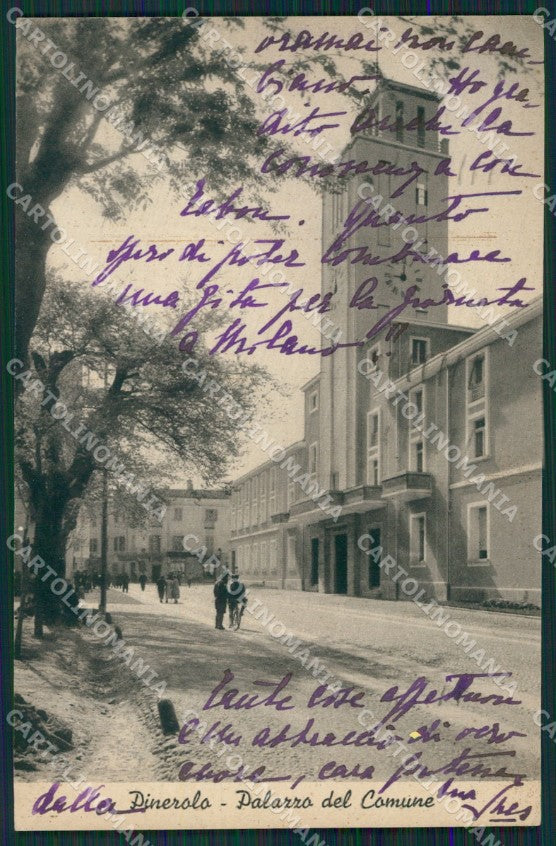 oramai non cam-
biano. Ho gra-
dito anche la
conoscenza con
Quanto
spero di poter combinare
una gita per la giornata
a Milano!!!
Tante cose affettuose
e un abbraccio di vero
cuore, cara
dalla tua
Pinerolo - Palazzo del Comune
CARTOLINOMANIA.COM